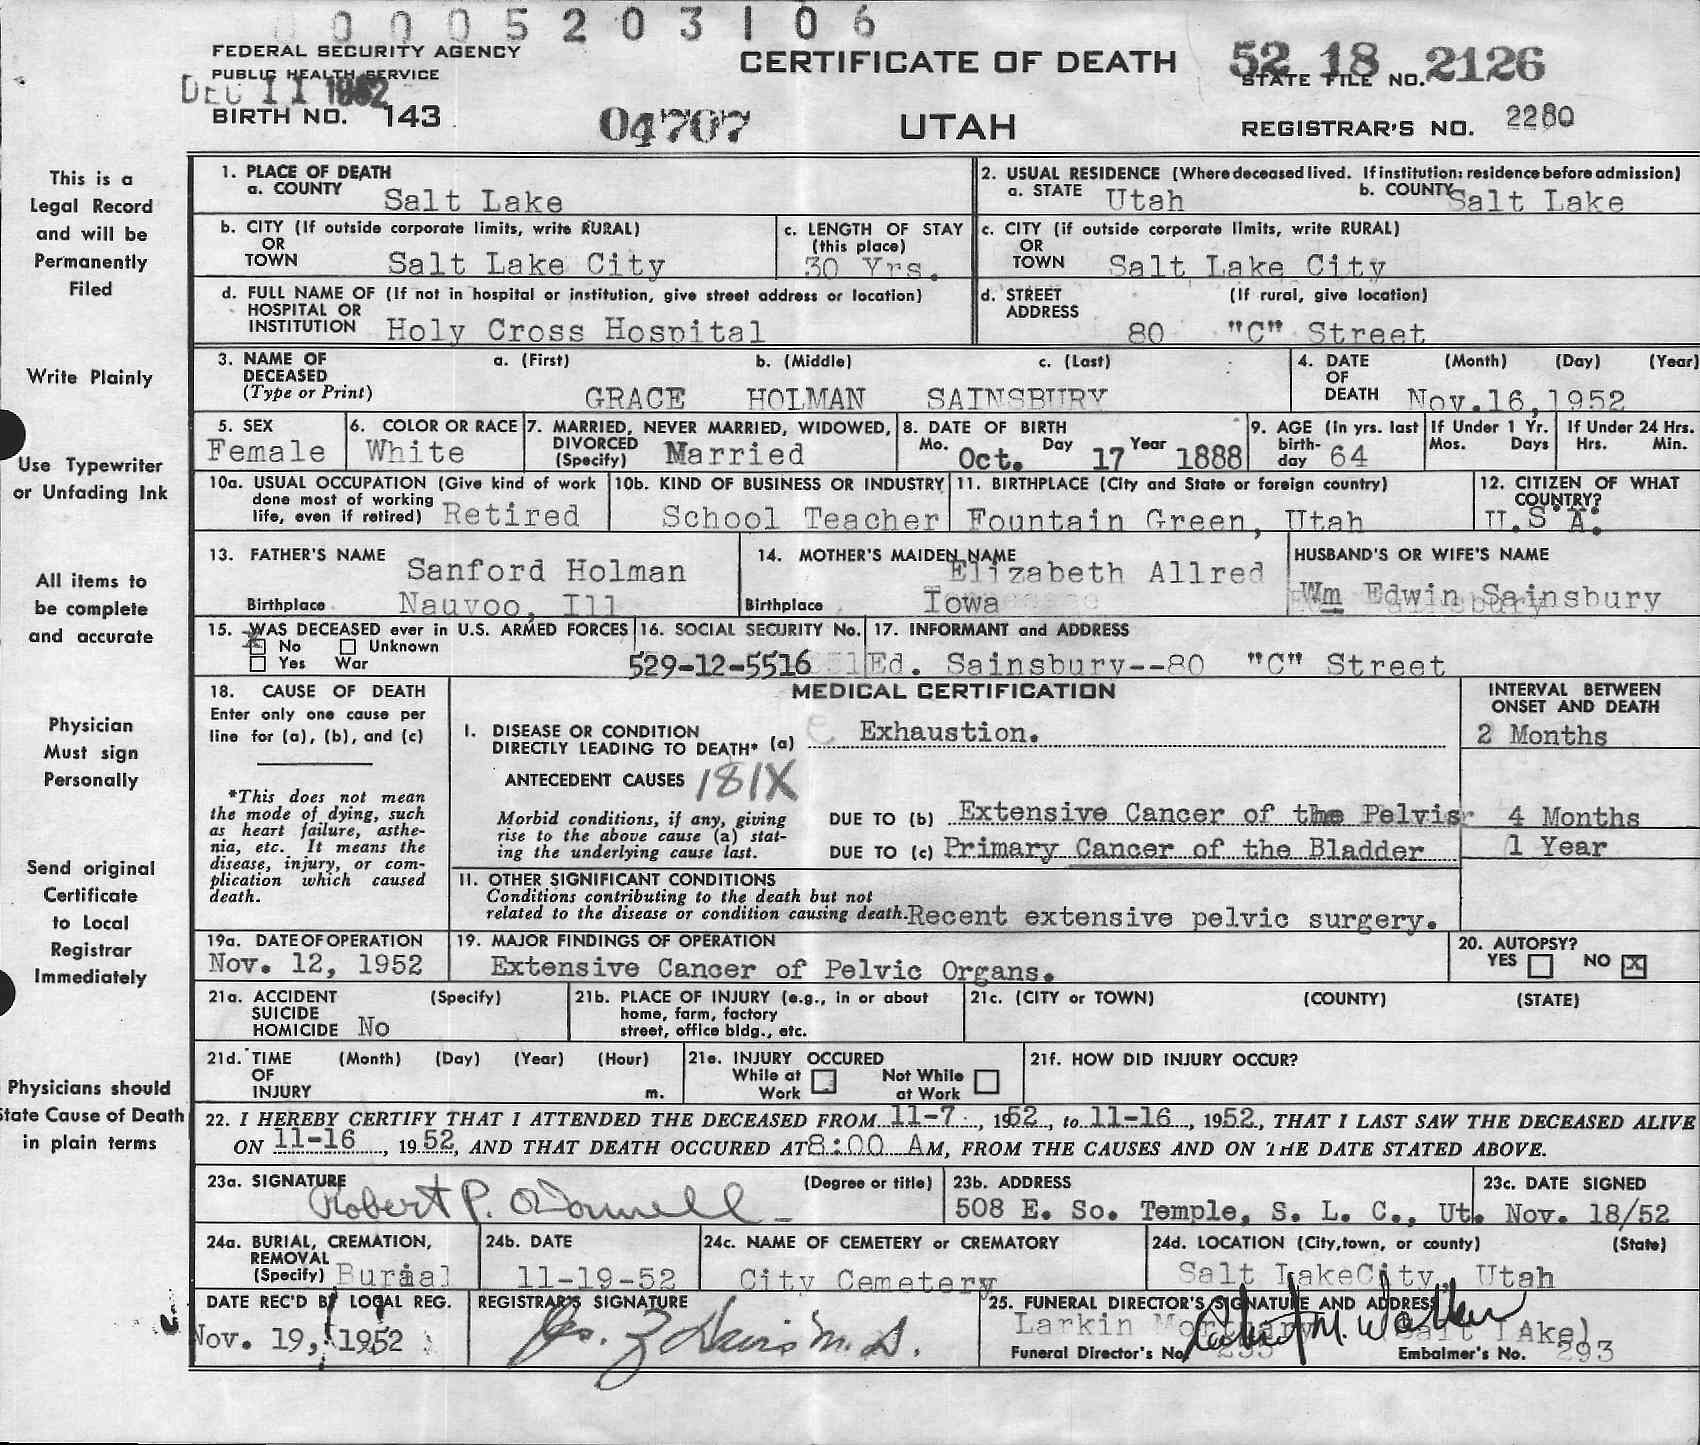 0005203106
FEDERAL SECURITY AGENCY
PUBLIC HEALTH SERVICE
DEC 11 1952
BIRTH NO. 143
04707
CERTIFICATE OF DEATH
UTAH
52 18 2126
STATE FILE NO.
REGISTRAR'S NO. 2280
This is a
Legal Record
and will be
Permanently
Filed
Write Plainly
Use Typewriter
or Unfading Ink
All items to
be complete
and accurate
Physician
Must sign
Personally
Send original
Certificate
to Local
Registrar
Immediately
Physicians should
State Cause of Death
in plain terms
1. PLACE OF DEATH
a. COUNTY Salt Lake
2. USUAL RESIDENCE (Where deceased lived. If institution: residence before admission)
a. STATE Utah b. COUNTY Salt Lake
b. CITY (If outside corporate limits, write RURAL)
OR
TOWN Salt Lake City
c. LENGTH OF STAY
(this place)
30 Yrs.
c. CITY (if outside corporate limits, write RURAL)
OR
TOWN Salt Lake City
d. FULL NAME OF (If not in hospital or institution, give street address or location)
HOSPITAL OR
INSTITUTION Holy Cross Hospital
d. STREET (If rural, give location)
ADDRESS
80 "C" Street
3. NAME OF a. (First) b. (Middle) c. (Last)
DECEASED
(Type or Print) GRACE HOLMAN SAINSBURY
4. DATE (Month) (Day) (Year)
OF
DEATH Nov.16,1952
5. SEX
Female
6. COLOR OR RACE
White
7. MARRIED, NEVER MARRIED, WIDOWED,
DIVORCED
(Specify) Married
8. DATE OF BIRTH
Mo. Oct. Day 17 Year 1888
9. AGE (In yrs. last
birth-
day 64
If Under 1 Yr.
Mos. Days
If Under 24 Hrs.
Hrs. Min.
10a. USUAL OCCUPATION (Give kind of work
done most of working
life, even if retired) Retired
10b. KIND OF BUSINESS OR INDUSTRY
School Teacher
11. BIRTHPLACE (City and State or foreign country)
Fountain Green, Utah
12. CITIZEN OF WHAT
COUNTRY?
U.S.A.
13. FATHER'S NAME Sanford Holman
Birthplace Nauvoo, Ill
14. MOTHER'S MAIDEN NAME
Elizabeth Allred
Birthplace Iowa
HUSBAND'S OR WIFE'S NAME
Wm Edwin Sainsbury
15. WAS DECEASED ever in U.S. ARMED FORCES
X No Unknown
Yes War
16. SOCIAL SECURITY No.
529-12-5516
17. INFORMANT and ADDRESS
Ed. Sainsbury--80 "C" Street
18. CAUSE OF DEATH
Enter only one cause per
line for (a), (b), and (c)
*This does not mean
the mode of dying, such
as heart failure, asthe-
nia, etc. It means the
disease, injury, or com-
plication which caused
death.
MEDICAL CERTIFICATION
INTERVAL BETWEEN
ONSET AND DEATH
I. DISEASE OR CONDITION
DIRECTLY LEADING TO DEATH* (a) Exhaustion. 2 Months
ANTECEDENT CAUSES 181X
Morbid conditions, if any, giving
rise to the above cause (a) stat-
ing the underlying cause last.
DUE TO (b) Extensive Cancer of the Pelvis 4 Months
DUE TO (c) Primary Cancer of the Bladder 1 Year
11. OTHER SIGNIFICANT CONDITIONS
Conditions contributing to the death but not
related to the disease or condition causing death. Recent extensive pelvic surgery.
19a. DATE OF OPERATION
Nov. 12, 1952
19. MAJOR FINDINGS OF OPERATION
Extensive Cancer of Pelvic Organs.
20. AUTOPSY?
YES NO X
21a. ACCIDENT (Specify)
SUICIDE
HOMICIDE No
21b. PLACE OF INJURY (e.g., in or about
home, farm, factory
street, office bldg., etc.
21c. (CITY or TOWN) (COUNTY) (STATE)
21d. TIME (Month) (Day) (Year) (Hour)
OF
INJURY m.
21e. INJURY OCCURED
While at Not While
Work at Work
21f. HOW DID INJURY OCCUR?
22. I HEREBY CERTIFY THAT I ATTENDED THE DECEASED FROM 11-7, 1952, to 11-16, 1952, THAT I LAST SAW THE DECEASED ALIVE
ON 11-16, 1952, AND THAT DEATH OCCURED AT 8:00 AM, FROM THE CAUSES AND ON THE DATE STATED ABOVE.
23a. SIGNATURE (Degree or title)
Robert P. O'Donnell
23b. ADDRESS
508 E. So. Temple, S. L. C., Ut.
23c. DATE SIGNED
Nov. 18/52
24a. BURIAL, CREMATION,
REMOVAL
(Specify) Burial
24b. DATE
11-19-52
24c. NAME OF CEMETERY or CREMATORY
City Cemetery
24d. LOCATION (City, town, or county) (State)
Salt LakeCity, Utah
DATE REC'D BY LOCAL REG.
Nov. 19, 1952
REGISTRAR'S SIGNATURE
M.D.
25. FUNERAL DIRECTOR'S SIGNATURE AND ADDRESS
Larkin Mortuary Salt Lake
Funeral Director's No. Embalmer's No. 293